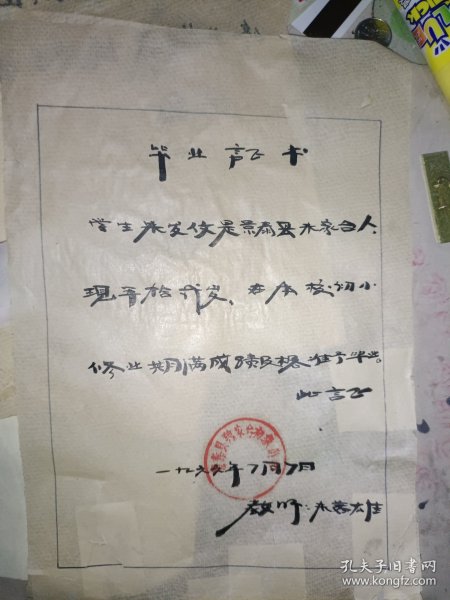 毕业証书
学生朱发俊是景泰县朱家台人
现年拾弍岁，在本校初小
修业期满成绩及格准予毕业
此証
一九六六年7月7日
教师：朱
孔夫子旧书网
www.kongfz.com